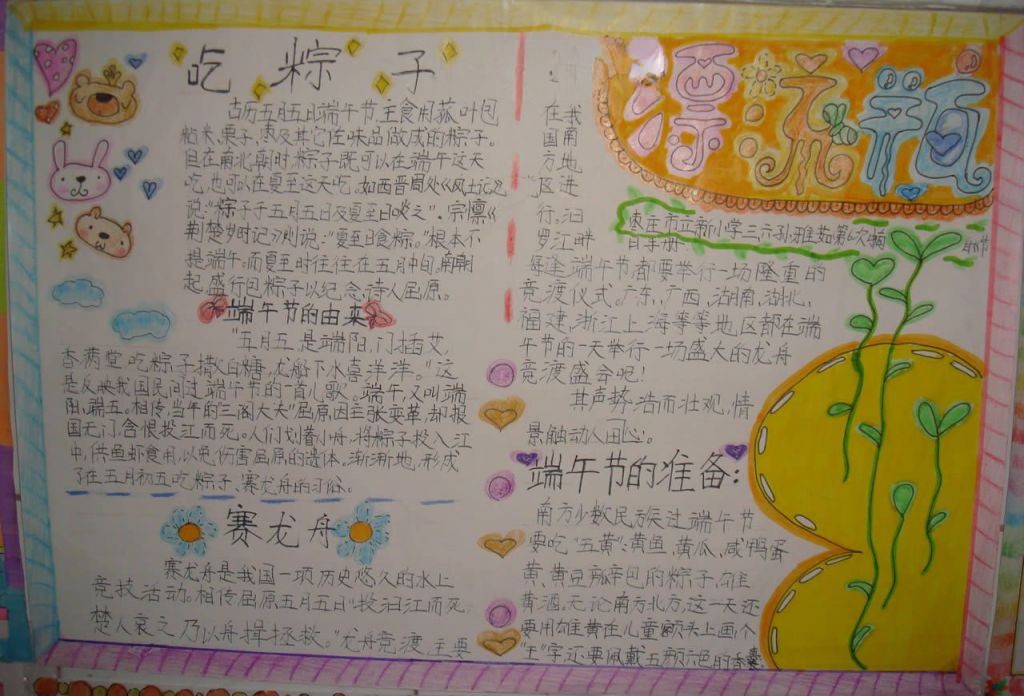 吃粽子
古历五月五日端午节,主食用菰叶包
粘米、栗子、枣及其它佐味品做成的粽子。
但在南北朝时,粽子既可以在端午这天
吃,也可以在夏至这天吃。如西晋周处《风土记》
说:"粽子于五月五日及夏至日啖之"。宗懔《
荆楚岁时记》则说:"夏至日食粽。"根本不
提端午。而夏至时往往在五月中旬,南朝
起,盛行包粽子以纪念诗人屈原。
端午节的由来
"五月五,是端阳,门插艾,
香满堂,吃粽子,撒白糖,龙船下水喜洋洋。"这
是反映我国民间过端午节的一首儿歌。端午,又叫端
阳、端五。相传,当年的三闾大夫"屈原因主张变革,却报
国无门,含恨投江而死。人们划着小舟,将粽子投入江
中,供鱼虾食用,以免伤害屈原的遗体。渐渐地,形成
了在五月初五吃粽子、赛龙舟的习俗。
赛龙舟
赛龙舟是我国一项历史悠久的水上
竞技活动。相传屈原五月五日"投汨江而死,
楚人哀之乃以舟揖拯救。"龙舟竞渡,主要
在我
国南
方地
区进
行。汨
罗江畔
每逢端午节,都要举行一场隆重的
竞渡仪式。广东、广西、湖南、湖北、
福建、浙江、上海等等地区都在端
午节的一天举行一场盛大的龙舟
竞渡盛会呢!
其声势浩而壮观,情
景触动人田心。
端午节的准备:
南方少数民族过端午节
要吃"五黄":黄鱼、黄瓜、咸鸭蛋
黄、黄豆瓣辛包的粽子、雄
黄酒。无论南方北方,这一天还
要用雄黄在儿童额头上画个
"王"字,还要佩戴五颜六色的香囊
漂流瓶
枣庄市立新小学三六孙雅茹第6次编
日手册